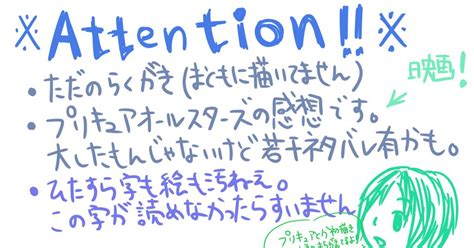 ※Attention!!※
・ただのらくがき(まともに描いてません)
映画!
・プリキュアオールスターズの感想です。
大したもんじゃないけど若干ネタバレ有かも。
・ひたすら字も絵も汚ねぇ。
この字が読めなかったらすいません
プリキュアとか初描き